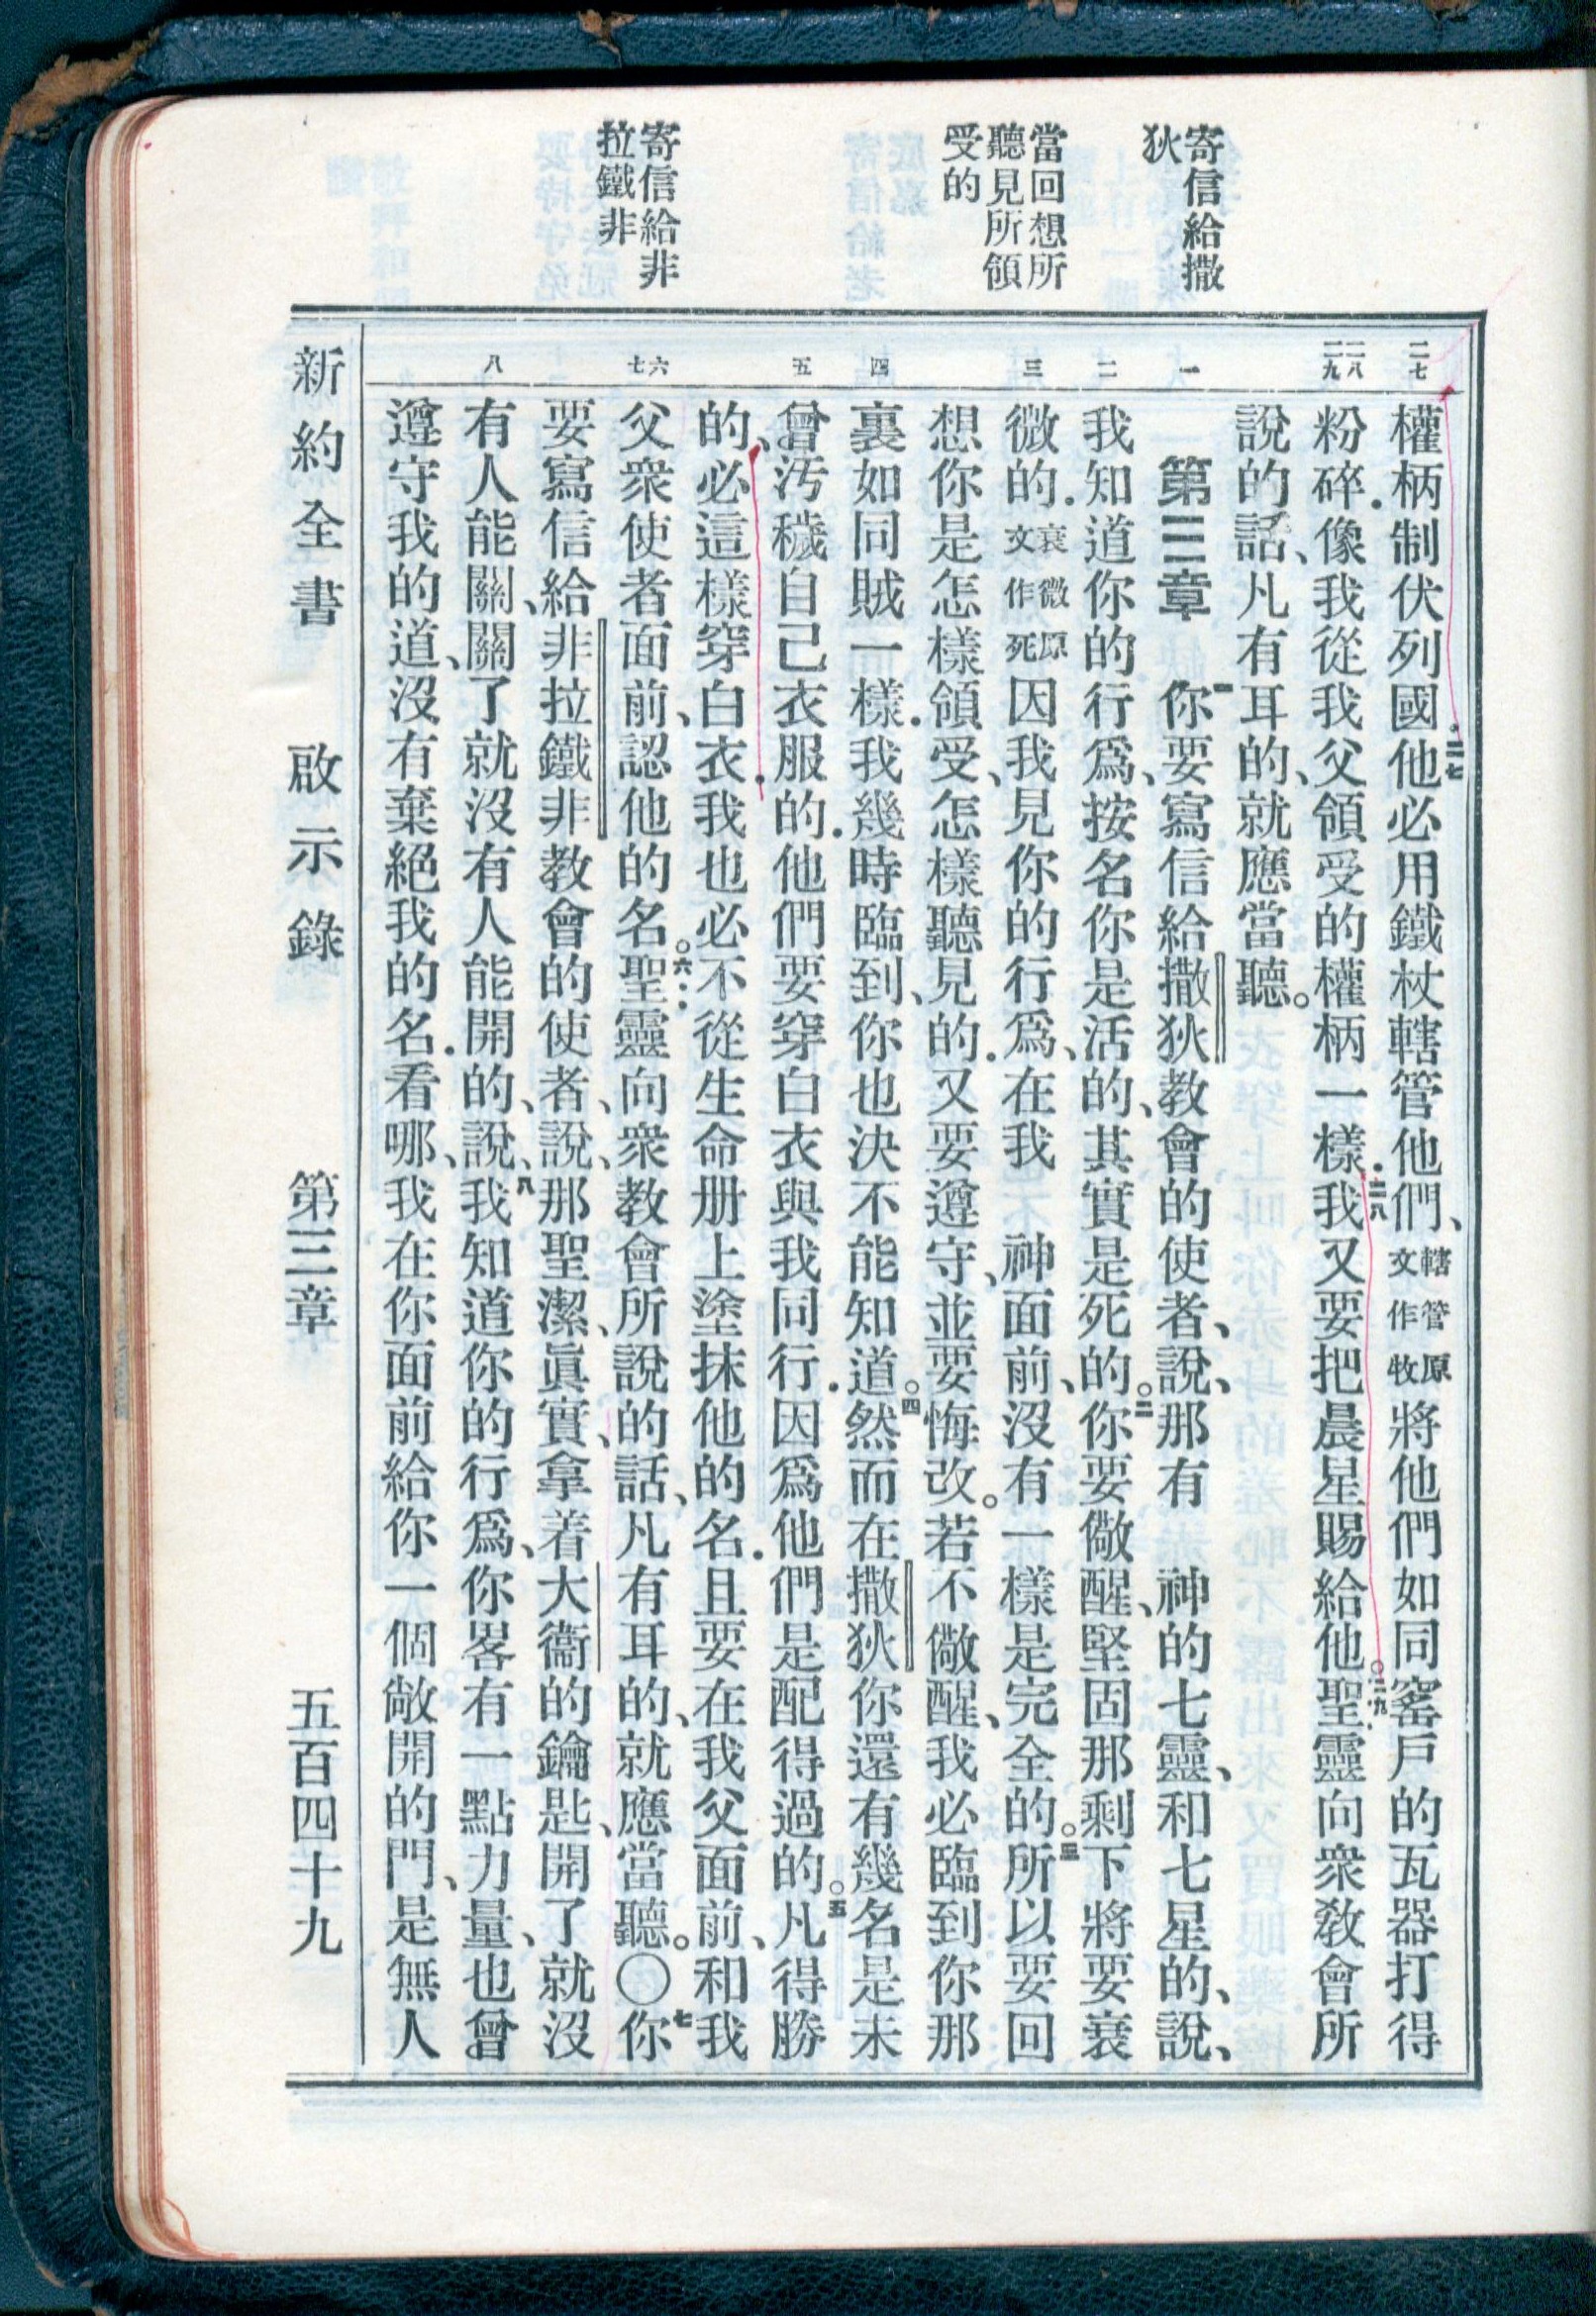 寄信給撒
狄
當回想所
聽見所領
受的
寄信給非
拉鐵非
二七
二八
二九
一
二
三
四
五
六
七
八
權柄制伏列國.二七他必用鐵杖轄管他們、轄管原文作牧將他們如同窰戶的瓦器打得
粉碎.像我從我父領受的權柄一樣.二八我又要把晨星賜給他。二九聖靈向衆教會所
說的話、凡有耳的、就應當聽。
第三章 一你要寫信給撒狄教會的使者、說、那有 神的七靈、和七星的、說、
我知道你的行爲、按名你是活的、其實是死的。二你要儆醒、堅固那剩下將要衰
微的.衰微原文作死因我見你的行爲、在我 神面前、沒有一樣是完全的。三所以要回
想你是怎樣領受、怎樣聽見的.又要遵守、並要悔改。若不儆醒、我必臨到你那
裏如同賊一樣.我幾時臨到、你也決不能知道。四然而在撒狄你還有幾名是未
曾汚穢自己衣服的.他們要穿白衣與我同行.因爲他們是配得過的。五凡得勝
的、必這樣穿白衣.我也必不從生命册上塗抹他的名.且要在我父面前、和我
父衆使者面前、認他的名。六聖靈向衆教會所說的話、凡有耳的、就應當聽。〇七你
要寫信給非拉鐵非教會的使者、說、那聖潔、眞實、拿着大衞的鑰匙、開了就沒
有人能關、關了就沒有人能開的、說、八我知道你的行爲、你畧有一點力量、也曾
遵守我的道、沒有棄絕我的名.看哪、我在你面前給你一個敞開的門、是無人
新約全書 啟示錄 第三章 五百四十九